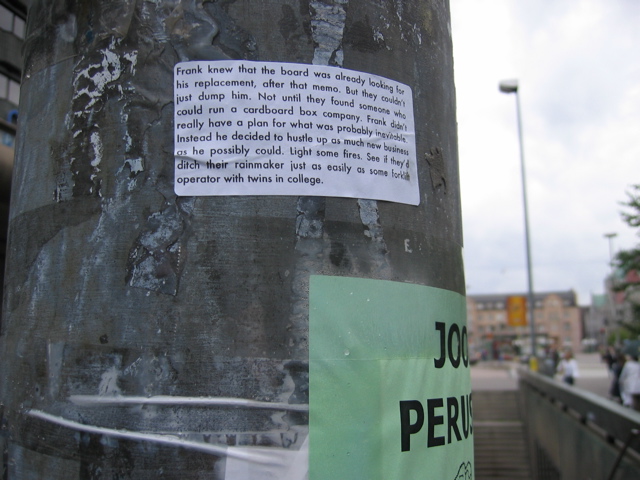 Frank knew that the board was already looking for
his replacement, after that memo. But they couldn't
just dump him. Not until they found someone who
could run a cardboard box company. Frank didn't
really have a plan for what was probably inevitable.
Instead he decided to hustle up as much new business
as he possibly could. Light some fires. See if they'd
ditch their rainmaker just as easily as some forklift
operator with twins in college.
E
JOO
PERUS